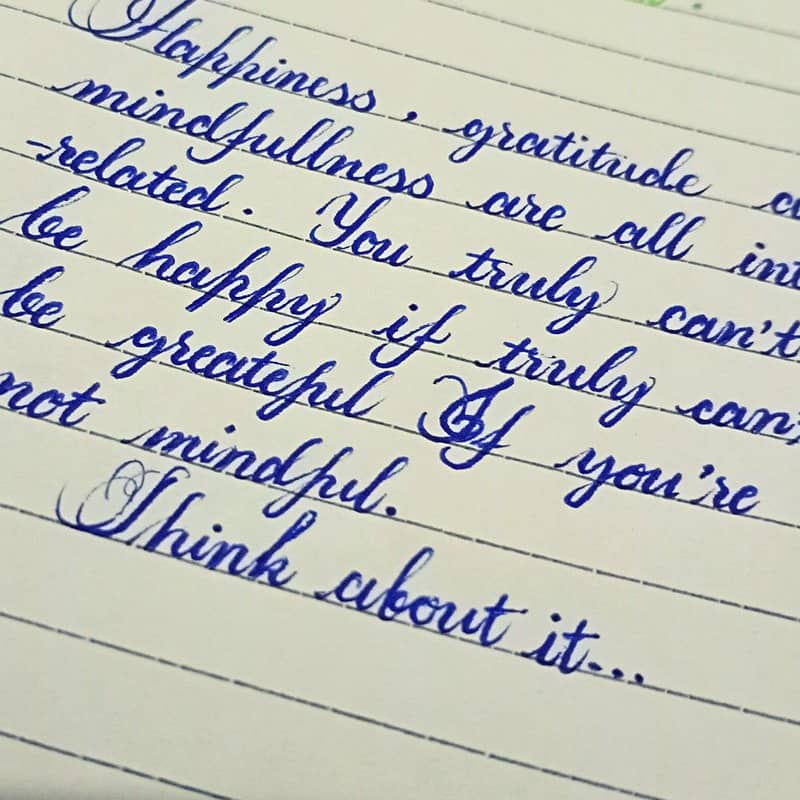 Happiness, gratitude
mindfullness are all int
-related. You truly can't
be happy if truly can
be greateful If you're
not mindful.
Think about it...